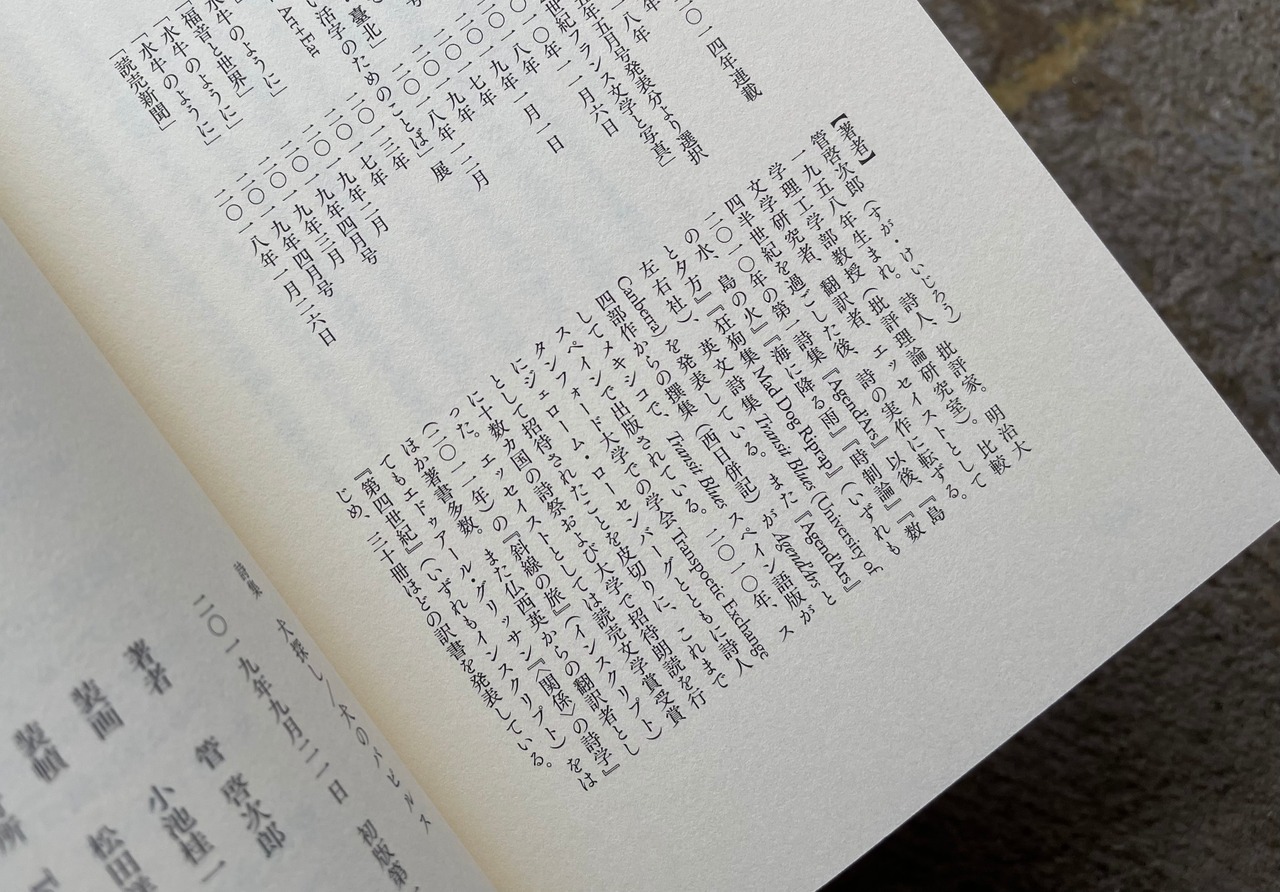 二〇一四年連載
五年五月号発表分より選択
世紀フランス文学と写真」
二〇一八年一二月六日
二〇一八年
二〇一九年一月一日
二〇一七年
二〇一九年
二〇一八年一二月
活字のためのことば」展
臺北」
二〇一三年
二〇一七年二月
二〇一九年四月号
「水牛のように」
二〇一九年三月
「福音と世界」
二〇一九年四月号
「水牛のように」
「水牛のように」
「読売新聞」
二〇一八年一月二六日
【著者】
管啓次郎（すが・けいじろう）
一九五八年生まれ。詩人、批評家。明治大
学理工学部教授（批評理論研究室）。比較
文学研究者、翻訳者、エッセイストとして
四半世紀を過ごした後、詩の実作に転ずる。
二〇一〇年の第一詩集『AgendArs』以後、『島
の水、島の火』『海に降る雨』『時制論』『数
と夕方』『狂狗集 Mad Dog Riprap』（いずれも
左右社）、英文詩集 Transit Blues (University of
Canberra) を発表している。また『AgendArs』
四部作からの撰集（西日併記）AgendArs が
メキシコで、Transit Blues がスペイン語版と
してスペインで出版されている。二〇一〇年、ス
タンフォード大学での学会 Transpoetic Exchange
にジェローム・ローゼンバーグとともに詩人
として招待されたことを皮切りに、これまで
に十数カ国の詩祭および大学で招待朗読を行
った。エッセイストとしては読売文学賞受賞
（二〇一一年）の『斜線の旅』（インスクリプト）
ほか著書多数。また仏西英からの翻訳者とし
てもエドゥアール・グリッサン『〈関係〉の詩学』
『第四世紀』（いずれもインスクリプト）をは
じめ、三十冊ほどの訳書を発表している。
詩集 犬探し／犬のパピルス
二〇一九年九月二一日 初版第一
著者 管啓次郎
装画 小池桂一
装幀 松田